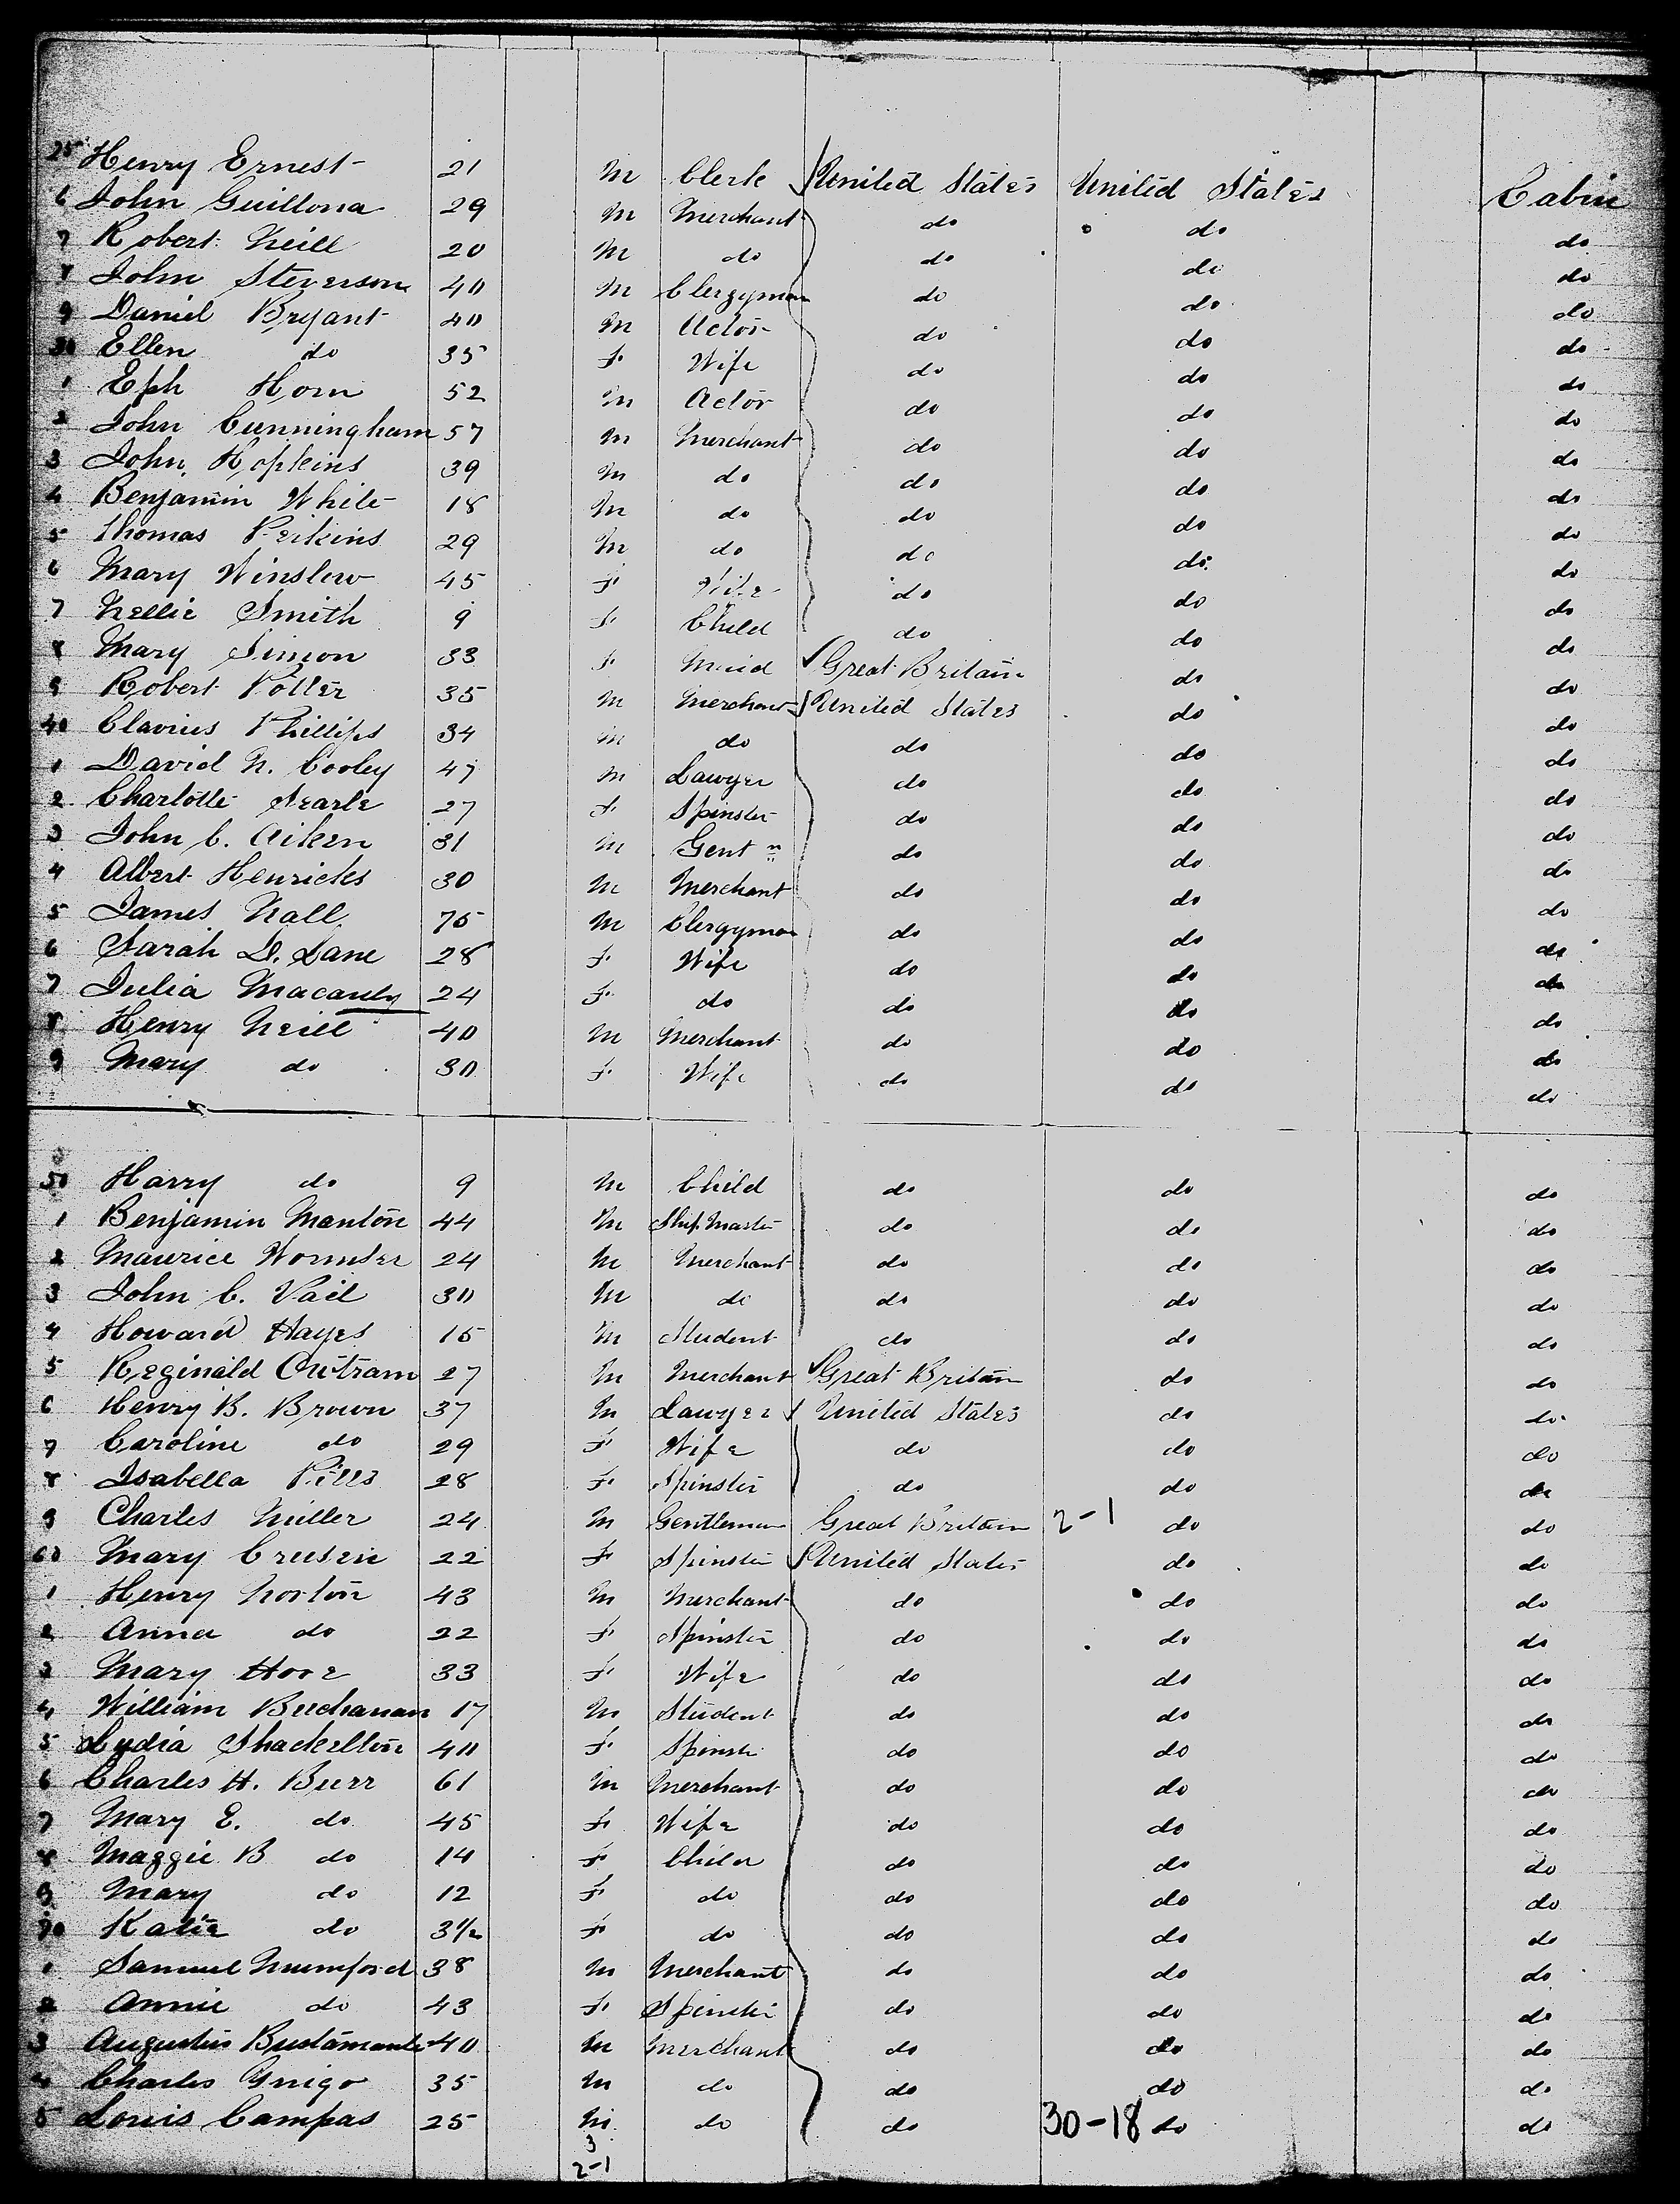 25 Henry Ernest 21 M Clerk United States United States Cabin
6 John Guillona 29 M Merchant do do do
7 Robert Neill 20 M do do do do
8 John Steverson 40 M Clergyman do do do
9 Daniel Bryant 40 M Actor do do do
30 Ellen do 35 F Wife do do do
1 Eph Horn 52 M Actor do do do
2 John Cunningham 57 M Merchant do do do
3 John Hopkins 39 M do do do do
4 Benjamin White 18 M do do do do
5 Thomas Perkins 29 M do do do do
6 Mary Winslow 45 F Wife do do do
7 Nellie Smith 9 F Child do do do
8 Mary Simon 33 F Maid Great Britain do do
9 Robert Potter 35 M Merchant United States do do
40 Clavius Phillips 34 M do do do do
1 David N. Cooley 47 M Lawyer do do do
2 Charlotte Searle 27 F Spinster do do do
3 John C. Aiken 31 M Gentn do do do
4 Albert Henricks 30 M Merchant do do do
5 James Nall 75 M Clergyman do do do
6 Sarah D. Lane 28 F Wife do do do
7 Julia Macauly 24 F do do do do
8 Henry Neill 40 M Merchant do do do
9 Mary do 30 F Wife do do do
50 Harry do 9 M Child do do do
1 Benjamin Manton 44 M Ship Master do do do
2 Maurice Wormser 24 M Merchant do do do
3 John C. Vail 30 M do do do do
4 Howard Hayes 15 M Student do do do
5 Reginald Outram 27 M Merchant Great Britain do do
6 Henry B. Brown 37 M Lawyer United States do do
7 Caroline do 29 F Wife do do do
8 Isabella Pitts 28 F Spinster do do do
9 Charles Miller 24 M Gentleman Great Britain 2-1 do do
60 Mary 22 F Spinster United States do do
1 Henry Norton 43 M Merchant do do do
2 Anna do 22 F Spinster do do do
3 Mary Hore 33 F Wife do do do
4 William Buchanan 17 M Student do do do
5 Lydia Shackelton 40 F Spinster do do do
6 Charles H. Burr 61 M Merchant do do do
7 Mary E. do 45 F Wife do do do
8 Maggie B do 14 F Child do do do
9 Mary do 12 F do do do do
70 Katie do 3½ F do do do do
1 Samuel Mumford 38 M Merchant do do do
2 Annie do 43 F Spinster do do do
3 Augustus Bustamante 40 M Merchant do do do
4 Charles Grigo 35 M do do do do
5 Louis Campas 25 M do do 30-18 do do
3
2-1